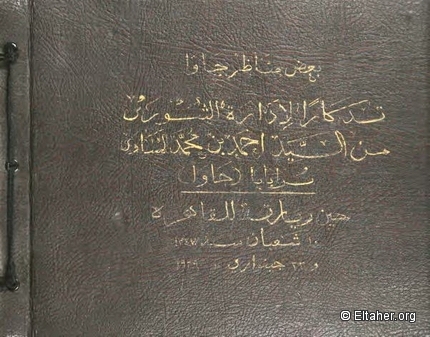 بعض مناظر جاوا
تذكارًا لإدارة الشورى
من السيد احمد بن محمد
سرابايا (جاوا)
حين زيارته للقاهرة
١٠ شعبان سنة ١٣٤٧
و ٢٣ جنواري ١٩٢٩
© Eltaher.org